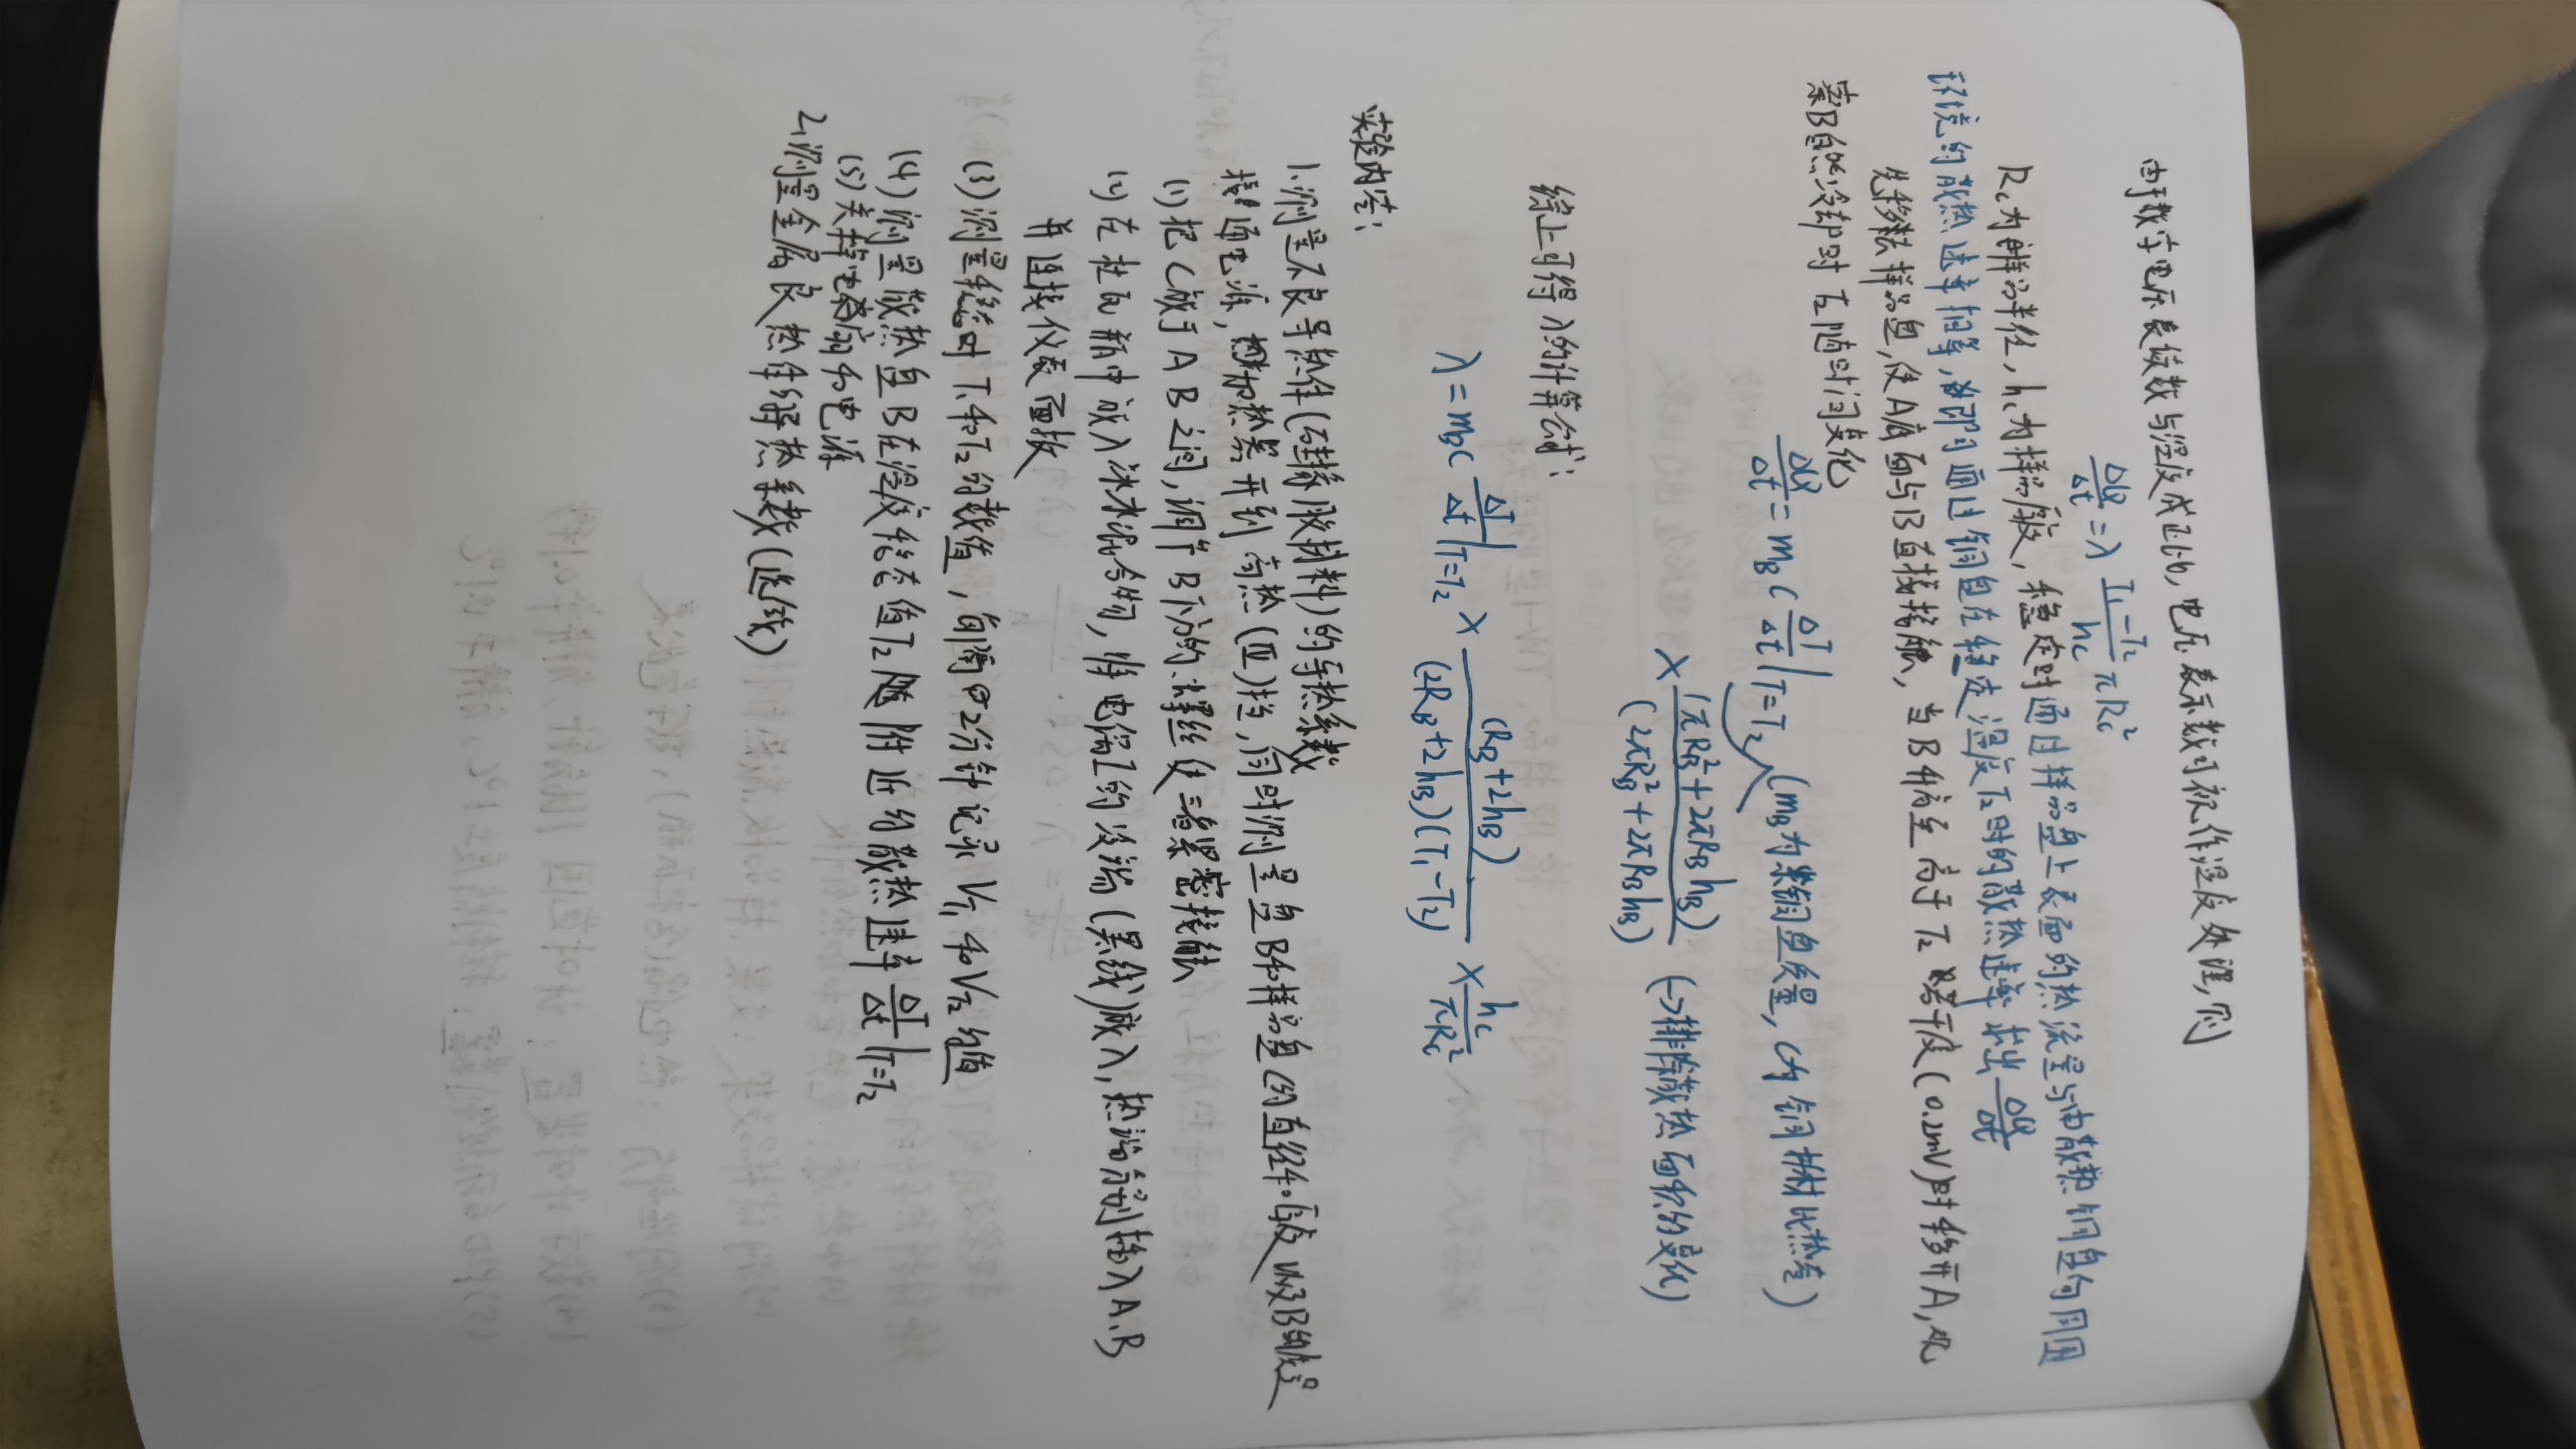 由于数字电压表读数与温度成正比,电压表示数可视作温度处理,则
ΔQ/Δt = λ (T₁-T₂)/h_C πR_C²
R_C为样品半径,h_C为样品厚度,稳定时通过样品盘上表面的热流量与由散热铜盘向周围
环境的散热速率相等,即可通过铜盘在稳定温度T₂时的散热速率求出 ΔQ/Δt
先移去样品盘,使A底面与B直接接触,当B升高至高于T₂若干度(0.2mV)时移开A,观
察B自然冷却时T₂随时间变化
ΔQ/Δt = m_B C ΔT/Δt |T=T₂ (m_B为铜盘质量,C为铜材比热容)
× (πR_B²+2πR_Bh_B)/(2πR_B²+2πR_Bh_B) (→排除散热面积的变化)
综上可得λ的计算公式:
λ = m_B C ΔT/Δt |T=T₂ × (R_B+2h_B)/(2R_B+2h_B)(T₁-T₂) × h_C/πR_C²
实验内容:
1.测量不良导热体(硅橡胶材料)的导热系数
接通电源,加热器开到高热(Ⅲ)挡,同时测量盘B和样品盘C的直径和厚度以及B的质量
(1)把C放于AB之间,调节B下方的螺丝使三者紧密接触
(2)在杜瓦瓶中放入冰水混合物,将电偶I的冷端(黑线)放入,热端分别插入A、B
并连接仪表面板
(3)测量稳态时T₁和T₂的数值,每隔2分钟记录V_T₁和V_T₂的值
(4)测量散热盘B在温度稳态值T₂附近的散热速率 ΔT/Δt |T=T₂
(5)关掉电扇和电源
2.测量金属良热体的导热系数(选做)